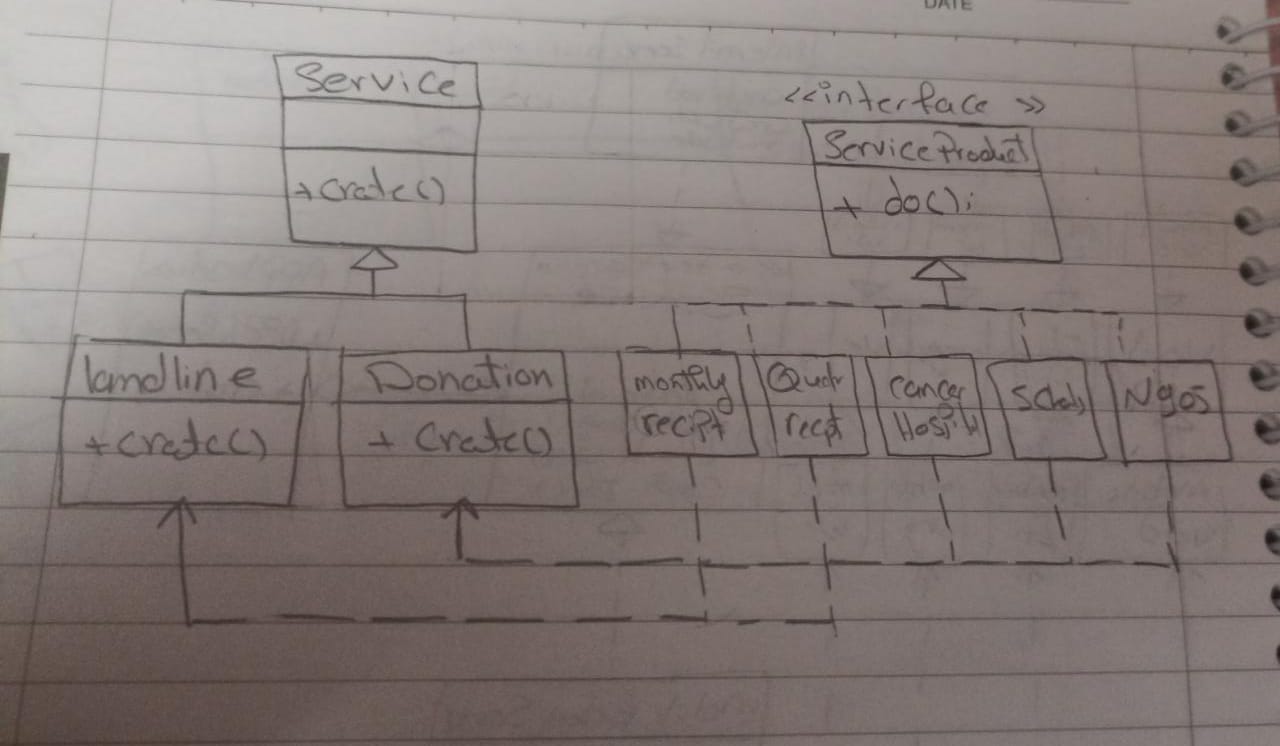 DATE
Service
+ Crate()
<<interface >>
ServiceProduct
+ do();
landline
+ Crate()
Donation
+ Crate()
monthly
recipt
recpt
cancer
Ngos